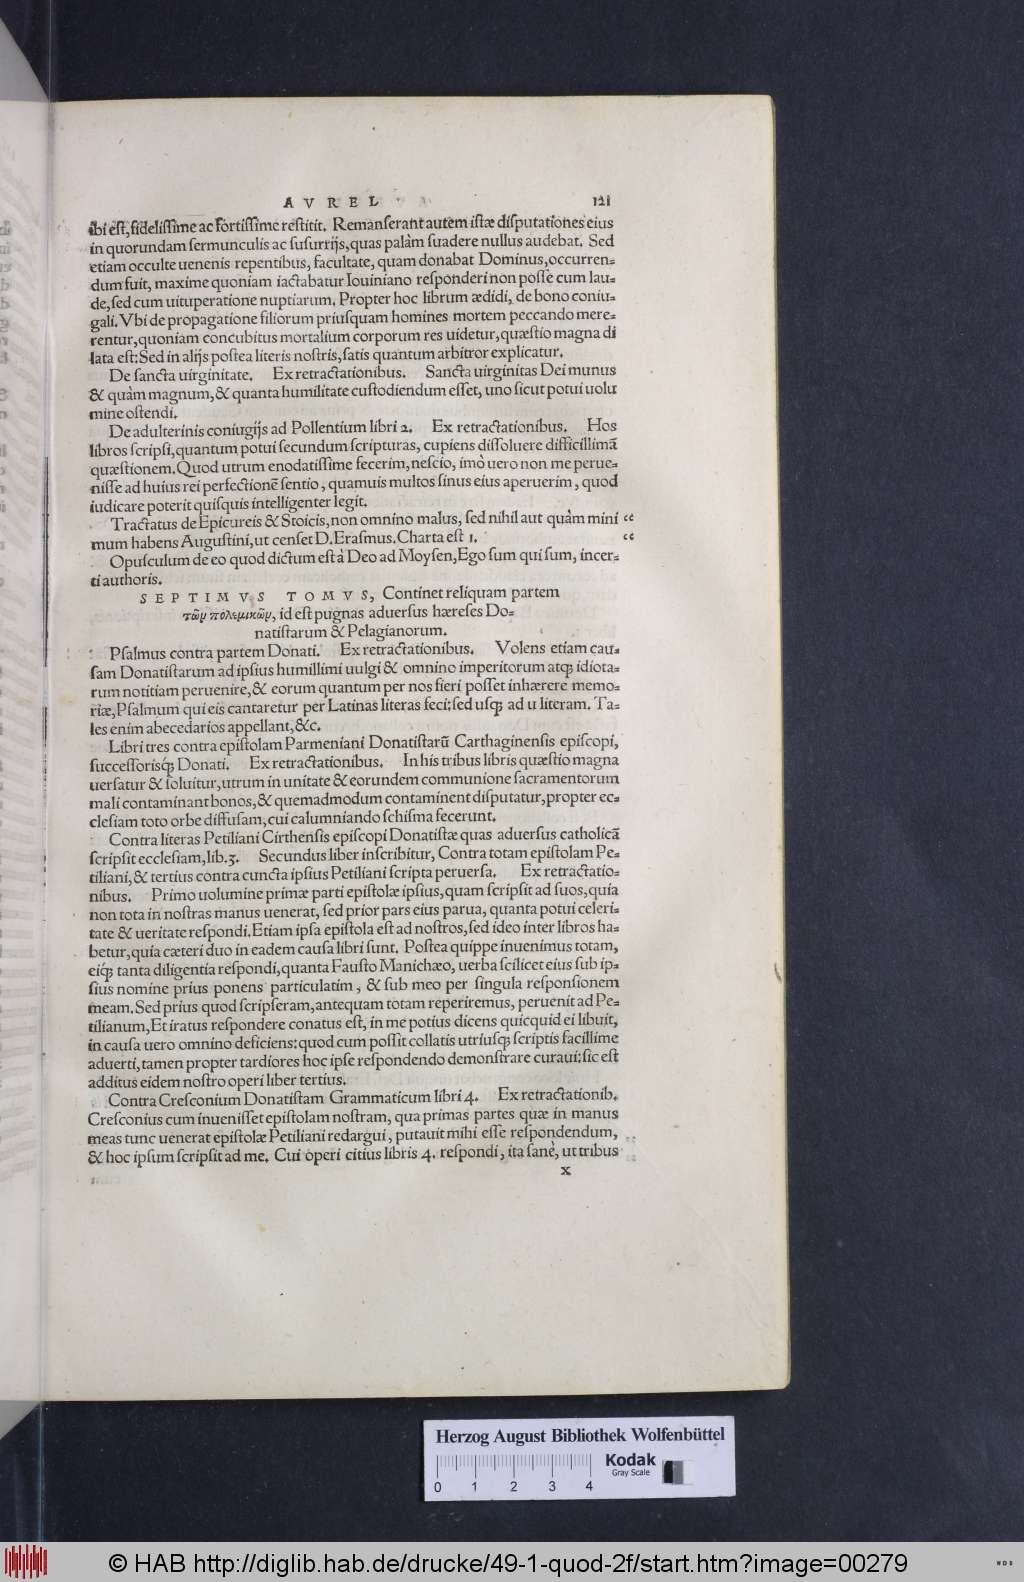 AVREL 121
ibi est, fidelissime ac fortissime restitit. Remanserant autem istæ disputationes eius
in quorundam sermunculis ac susurrijs, quas palàm suadere nullus audebat. Sed
etiam occulte uenenis repentibus, facultate, quam donabat Dominus, occurren=
dum fuit, maxime quoniam iactabatur Iouiniano responderi non posse cum lau=
de, sed cum uituperatione nuptiarum. Propter hoc librum ædidi, de bono coniu=
gali. Vbi de propagatione filiorum priusquam homines mortem peccando mere=
rentur, quoniam concubitus mortalium corporum res uidetur, quæstio magna di
lata est: Sed in alijs postea literis nostris, satis quantum arbitror explicatur.
De sancta uirginitate. Ex retractationibus. Sancta uirginitas Dei munus
& quàm magnum, & quanta humilitate custodiendum esset, uno sicut potui uolu
mine ostendi.
De adulterinis coniugijs ad Pollentium libri 2. Ex retractationibus. Hos
libros scripsi, quantum potui secundum scripturas, cupiens dissoluere difficillimā
quæstionem. Quod utrum enodatissime fecerim, nescio, imò uero non me perue=
nisse ad huius rei perfectionē sentio, quamuis multos sinus eius aperuerim, quod
iudicare poterit quisquis intelligenter legit.
Tractatus de Epicureis & Stoicis, non omnino malus, sed nihil aut quàm mini “
mum habens Augustini, ut censet D. Erasmus. Charta est 1. “
Opusculum de eo quod dictum est à Deo ad Moysen, Ego sum qui sum, incer=
ti authoris.
SEPTIMVS TOMVS, Continet reliquam partem
τῶν πολεμικῶν, id est pugnas aduersus hæreses Do=
natistarum & Pelagianorum.
Psalmus contra partem Donati. Ex retractationibus. Volens etiam cau=
sam Donatistarum ad ipsius humillimi uulgi & omnino imperitorum atq; idiota=
rum notitiam peruenire, & eorum quantum per nos fieri posset inhærere memo=
riæ, Psalmum qui eis cantaretur per Latinas literas feci: sed usq; ad u literam. Ta=
les enim abecedarios appellant, &c.
Libri tres contra epistolam Parmeniani Donatistarū Carthaginensis episcopi,
successorisq́; Donati. Ex retractationibus. In his tribus libris quæstio magna
uersatur & soluitur, utrum in unitate & eorundem communione sacramentorum
mali contaminant bonos, & quemadmodum contaminent disputatur, propter ec=
clesiam toto orbe diffusam, cui calumniando schisma fecerunt.
Contra literas Petiliani Cirthensis episcopi Donatistæ quas aduersus catholicā
scripsit ecclesiam, lib. 3. Secundus liber inscribitur, Contra totam epistolam Pe=
tiliani, & tertius contra cuncta ipsius Petiliani scripta peruersa. Ex retractatio=
nibus. Primo uolumine primæ parti epistolæ ipsius, quam scripsit ad suos, quia
non tota in nostras manus uenerat, sed prior pars eius parua, quanta potui celeri=
tate & ueritate respondi. Etiam ipsa epistola est ad nostros, sed ideo inter libros ha=
betur, quia cæteri duo in eadem causa libri sunt. Postea quippe inuenimus totam,
eiq́; tanta diligentia respondi, quanta Fausto Manichæo, uerba scilicet eius sub ip=
sius nomine prius ponens particulatim, & sub meo per singula responsionem
meam. Sed prius quod scripseram, antequam totam reperiremus, peruenit ad Pe=
tilianum, Et iratus respondere conatus est, in me potius dicens quicquid ei libuit,
in causa uero omnino deficiens: quod cum possit collatis utriusq; scriptis facillime
aduerti, tamen propter tardiores hoc ipse respondendo demonstrare curaui: sic est
additus eidem nostro operi liber tertius.
Contra Cresconium Donatistam Grammaticum libri 4. Ex retractationib.
Cresconius cum inuenisset epistolam nostram, qua primas partes quæ in manus
meas tunc uenerat epistolæ Petiliani redargui, putauit mihi esse respondendum,
& hoc ipsum scripsit ad me. Cui operi citius libris 4. respondi, ita sanè, ut tribus
x
Herzog August Bibliothek Wolfenbüttel
Kodak
Gray Scale
0 1 2 3 4
© HAB http://diglib.hab.de/drucke/49-1-quod-2f/start.htm?image=00279